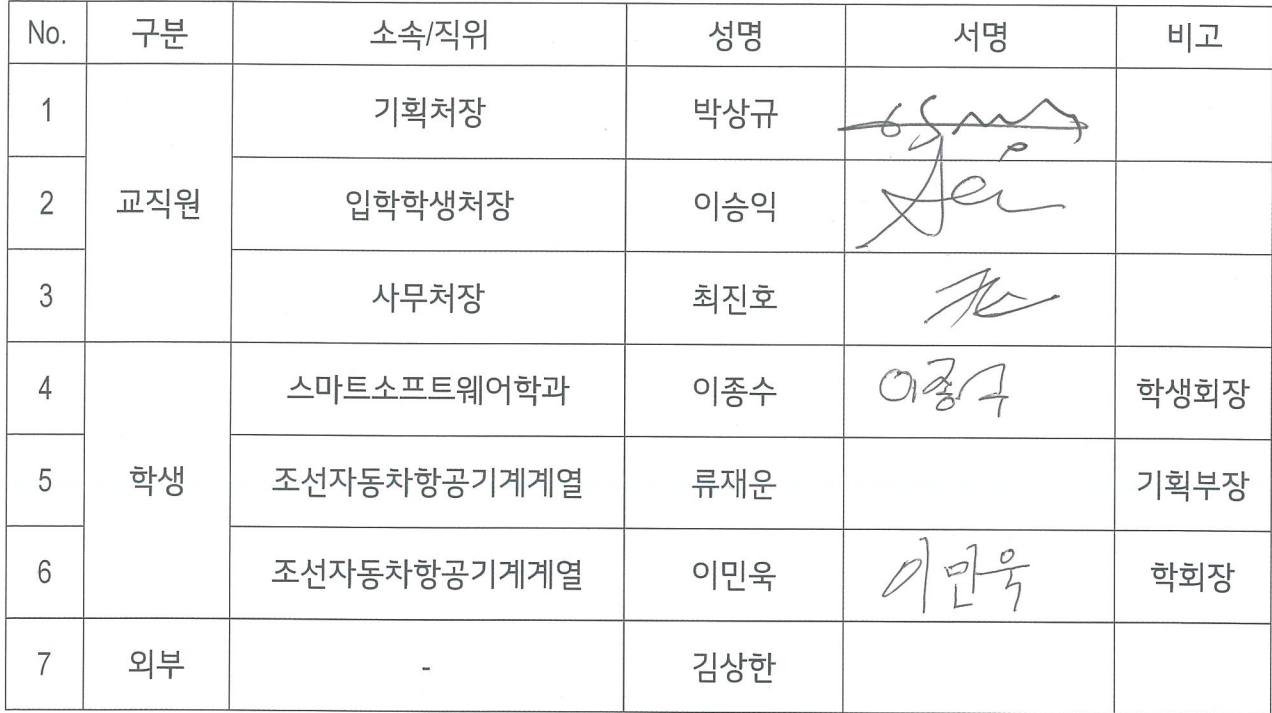 No. 구분 소속/직위 성명 서명 비고
1 교직원 기획처장 박상규
2 입학학생처장 이승익
3 사무처장 최진호
4 학생 스마트소프트웨어학과 이종수 이종수 학생회장
5 조선자동차항공기계계열 류재운 기획부장
6 조선자동차항공기계계열 이민욱 이민욱 학회장
7 외부 - 김상한